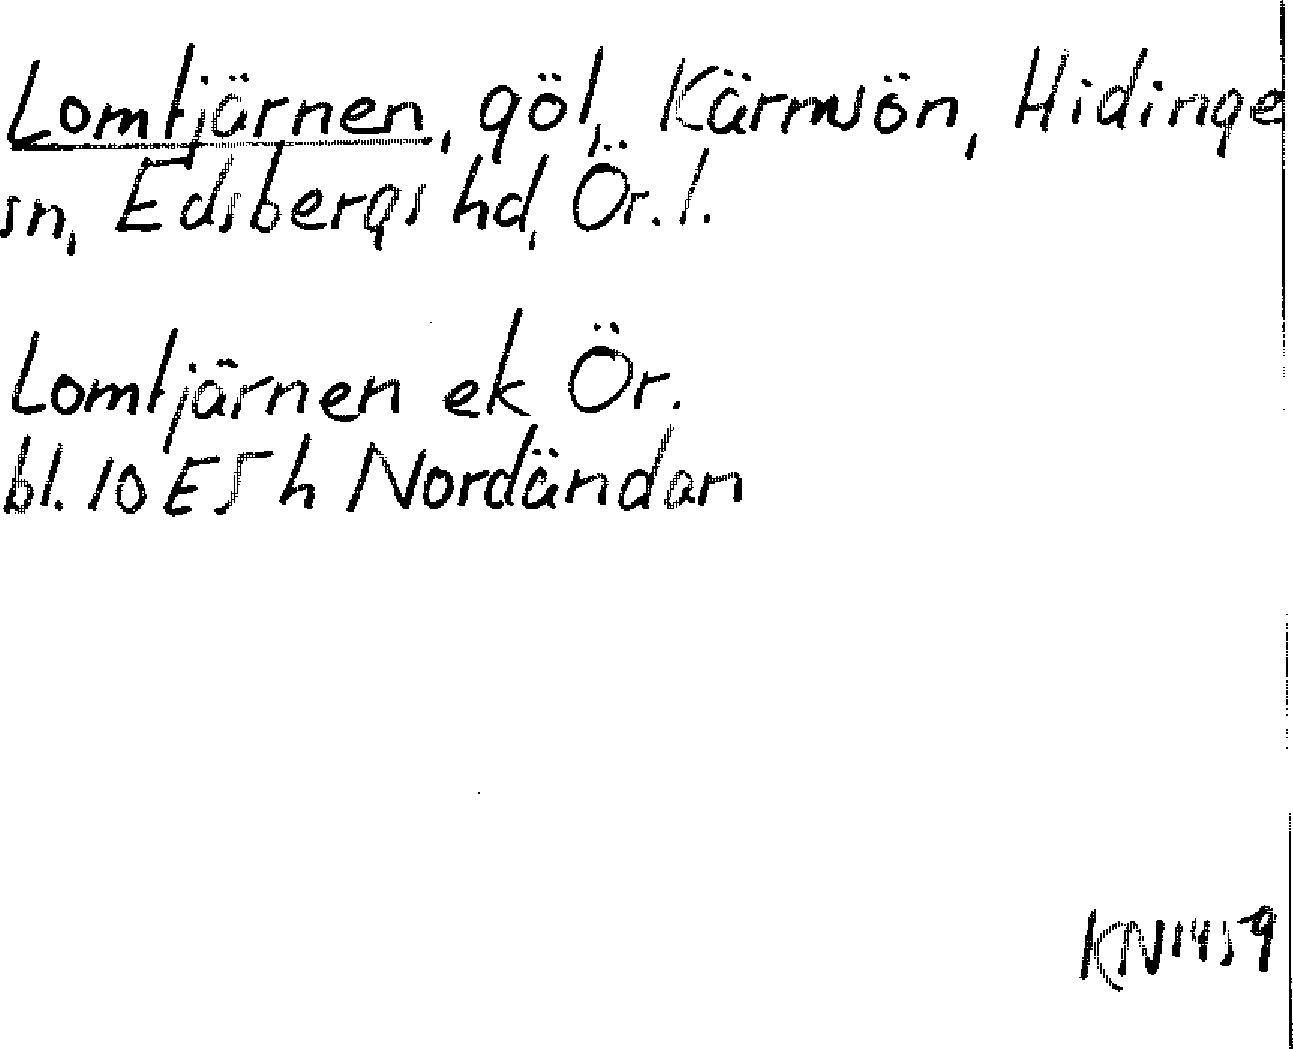 Lomtjärnen, göl, Kärmsön, Hidinge
sn, Edsbergs hd, Ör. l.
Lomtjärnen ek Ör.
bl. 10 E 5 h Nordändan